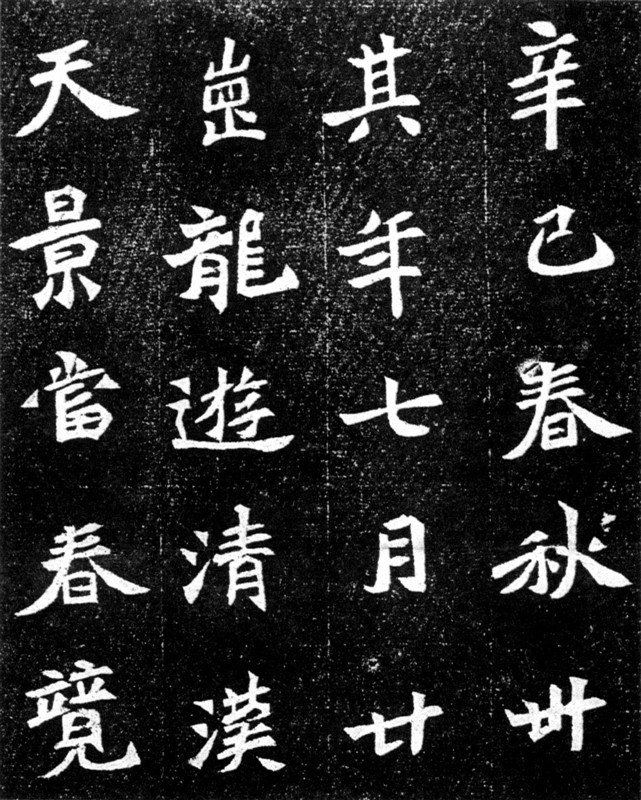 辛巳春秋卌
其年七月廿
龍遊清漢
天景當春競